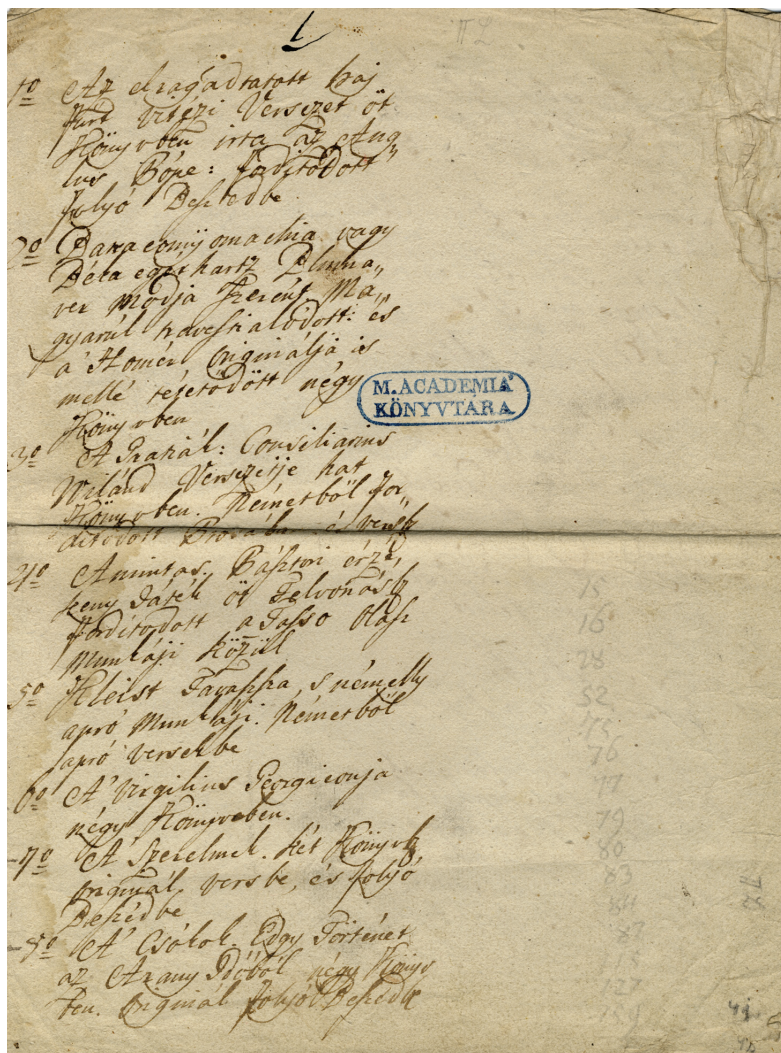 1
1º Az elragadtatott haj
fürt vitézi Versezet öt
Könyvben irta az Ang„
lus Pópe: fordítódott
folyó Beszédbe.
2º Batracomÿomachia vagy
Béka egér hartz Bluma„
ver módja szerént Ma„
gyarúl travestialódott: és
a' Homér Originálja is
mellé tétetődött négy
Könyvben
3º A Gratziák: Consiliarius
Wiland Versezetje hat
Könyvben. Németből for„
dítódott Prózába és versb
4º Amintas. Pásztori érzé„
keny Játék öt Felvonásb
fordítódott a Tasso Olasz
Munkáji közzül
5º Kleist Tavassza, s némelly
apró Munkáji. Németből
apró versekbe
6º A' Virgilius Georgiconja
négy Könyveben.
7º A' Szerelmek. két Könyvb
Originál versbe, és folyó
Beszédbe
8º A' Csókok. Edgy Történet
az Arany Időből négy Könyv
ben. Originál folyó Beszédbe
M. ACADEMIA
KÖNYVTÁRA
15
16
28
52
76
77
79
80
83
87
115
127
159